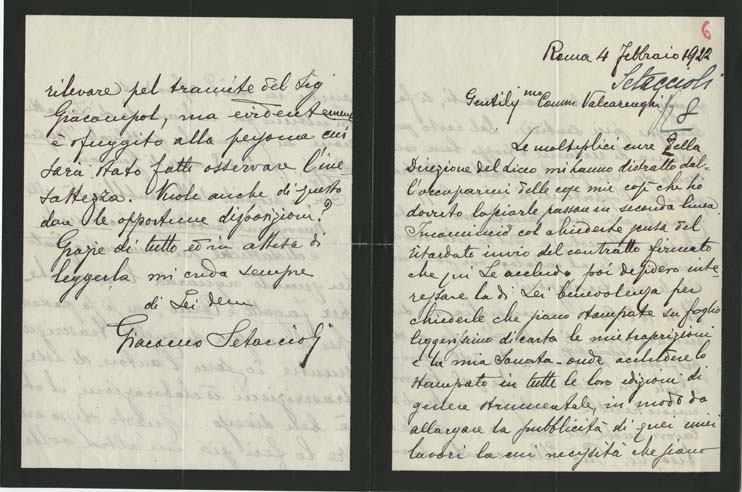 6
Roma 4 Febbraio 1922
Setaccioli
Gentiliss mo Comm Valcarenghi
8
Le molteplici cure della
Direzione del liceo mi hanno distratto dal-
l'occuparmi delle cose mie così che ho
dovuto lasciarle passare in seconda linea.
Incomincio col chiederle scusa del
ritardato invio del contratto firmato
che qui Le accludo poi desidero inte-
ressare la di Lei benevolenza per
chiederle che siano stampate su foglio
leggerissimo di carta le mie trascrizioni
e la mia Sonata - onde accludere lo
stampato in tutte le loro edizioni di
genere strumentale, in modo da
allargare la pubblicità di quei miei
lavori la cui necessità che siano
rilevare pel tramite del Sig
Giacompol, ma evidentemente
è sfuggito alla persona cui
sarà stato fatto osservare l'ine-
sattezza. Vuole anche di questo
dare le opportune disposizioni?
Grazie di tutto ed in attesa di
leggerla mi creda sempre
di Lei dem
Giacomo Setaccioli